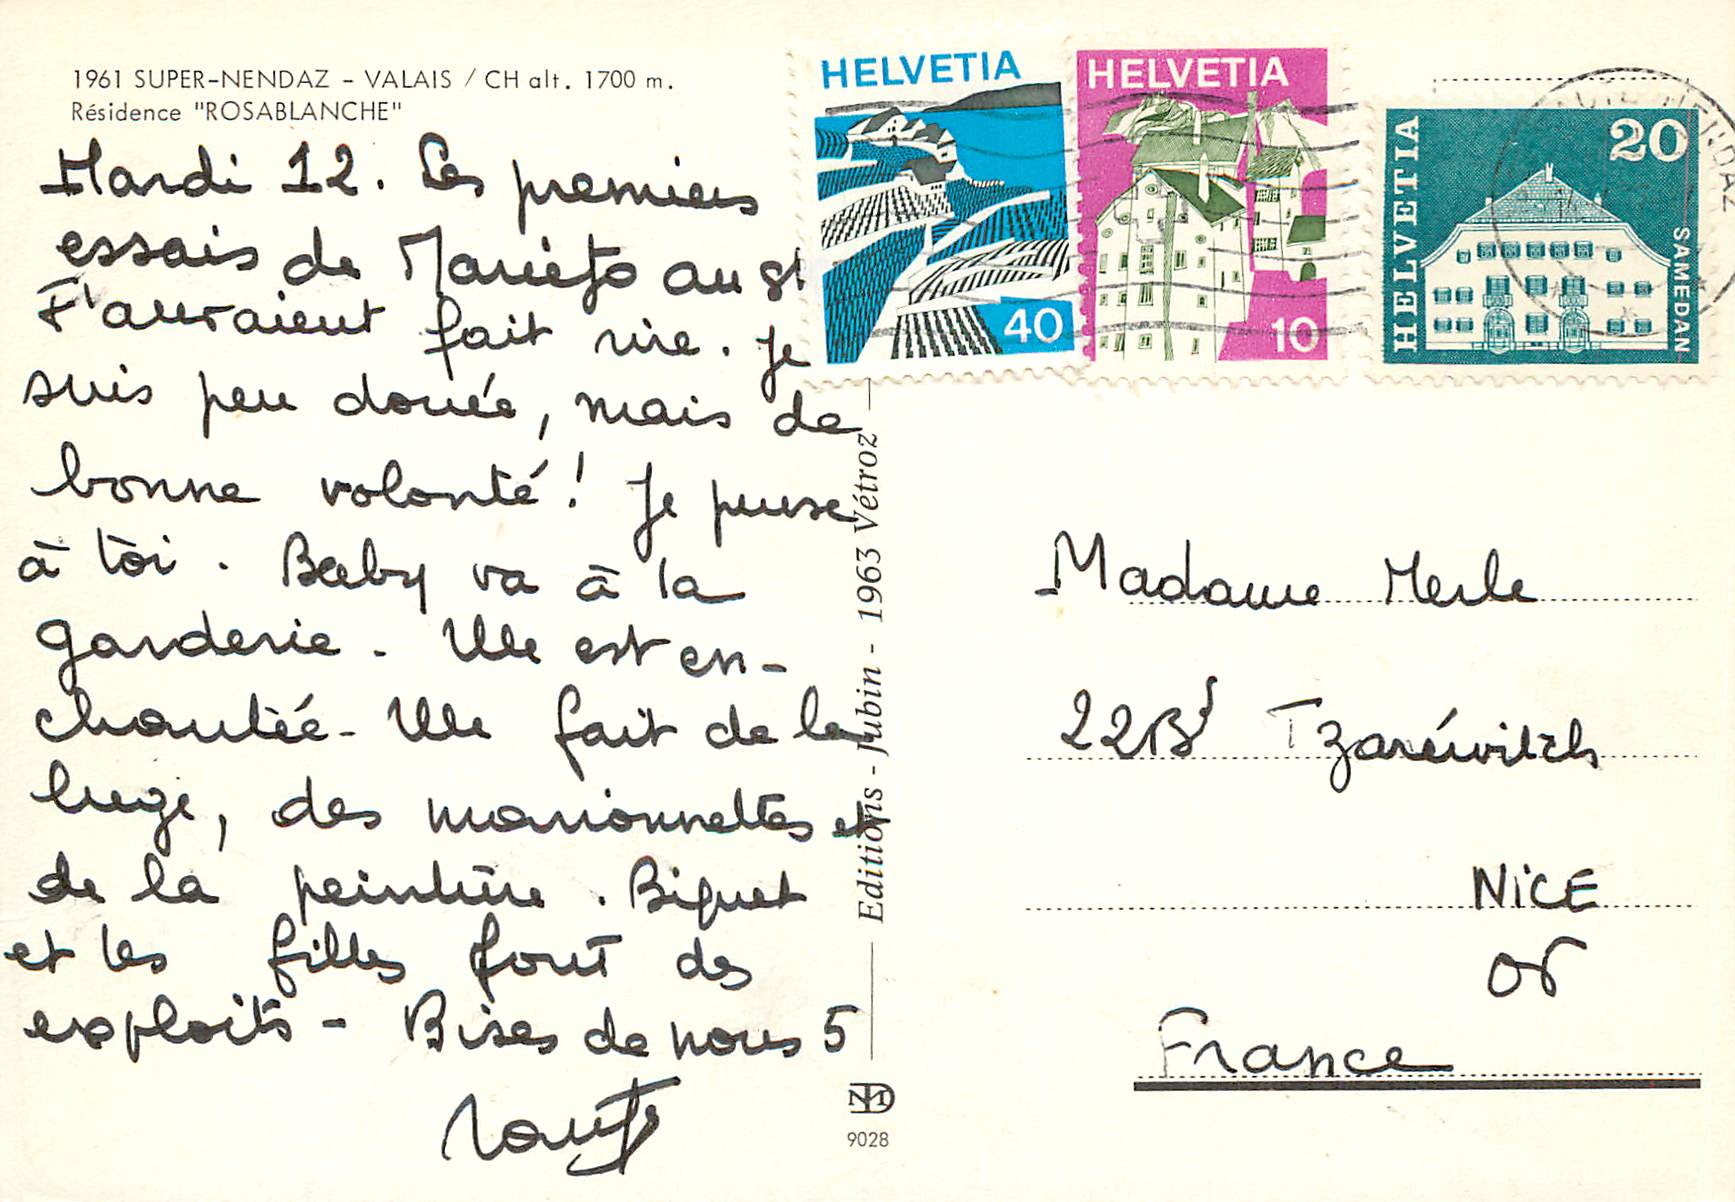 1961 SUPER-NENDAZ - VALAIS / CH alt. 1700 m.
Résidence "ROSABLANCHE"
Mardi 12. Les premiers
essais de Mariejo au ski
t'auraient fait rire. Je
suis peu douée, mais de
bonne volonté! Je pense
à toi. Baby va à la
garderie - Elle est en-
chantée - Elle fait de la
luge, des marionnettes et
de la peinture. Biquet
et les filles font des
exploits - Bises de nous 5
HELVETIA
40
HELVETIA
10
HELVETIA
20
SAMEDAN
Editions - Jubin - 1963 Vétroz
9028
Madame Merle
22 Bd Tzaréwitch
NICE
06
France